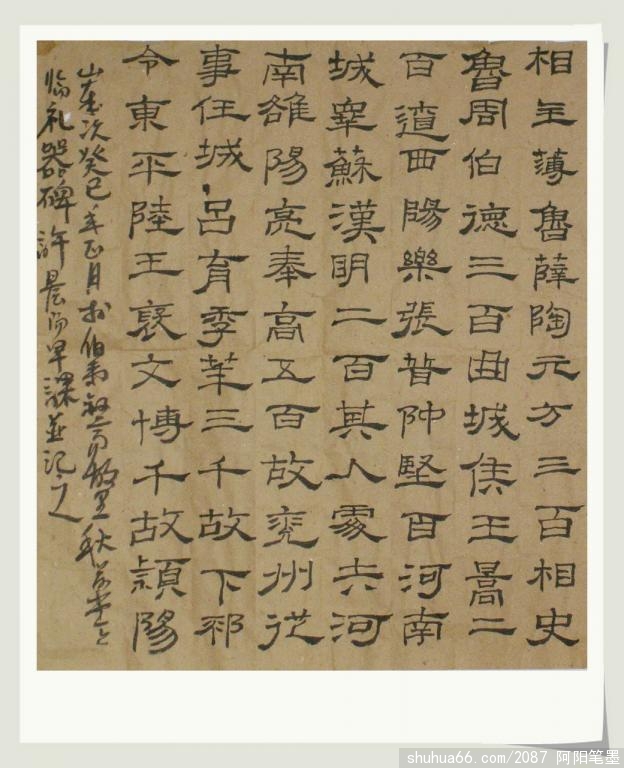 相主薄魯薛陶元方三百相史
魯周伯德三百曲城侯王暠二
百遼西陽樂張普仲堅百河南
城睾蘇漢明二百其人處士河
南雒陽亮奉高五百故兖州從
事任城吕育季華三千故下邳
令東平陸王褒文博千故潁陽
歲次癸巳年正月於伯故里秋
临礼器碑許早課並记之
shuhua66.com/2087 阿阳笔墨